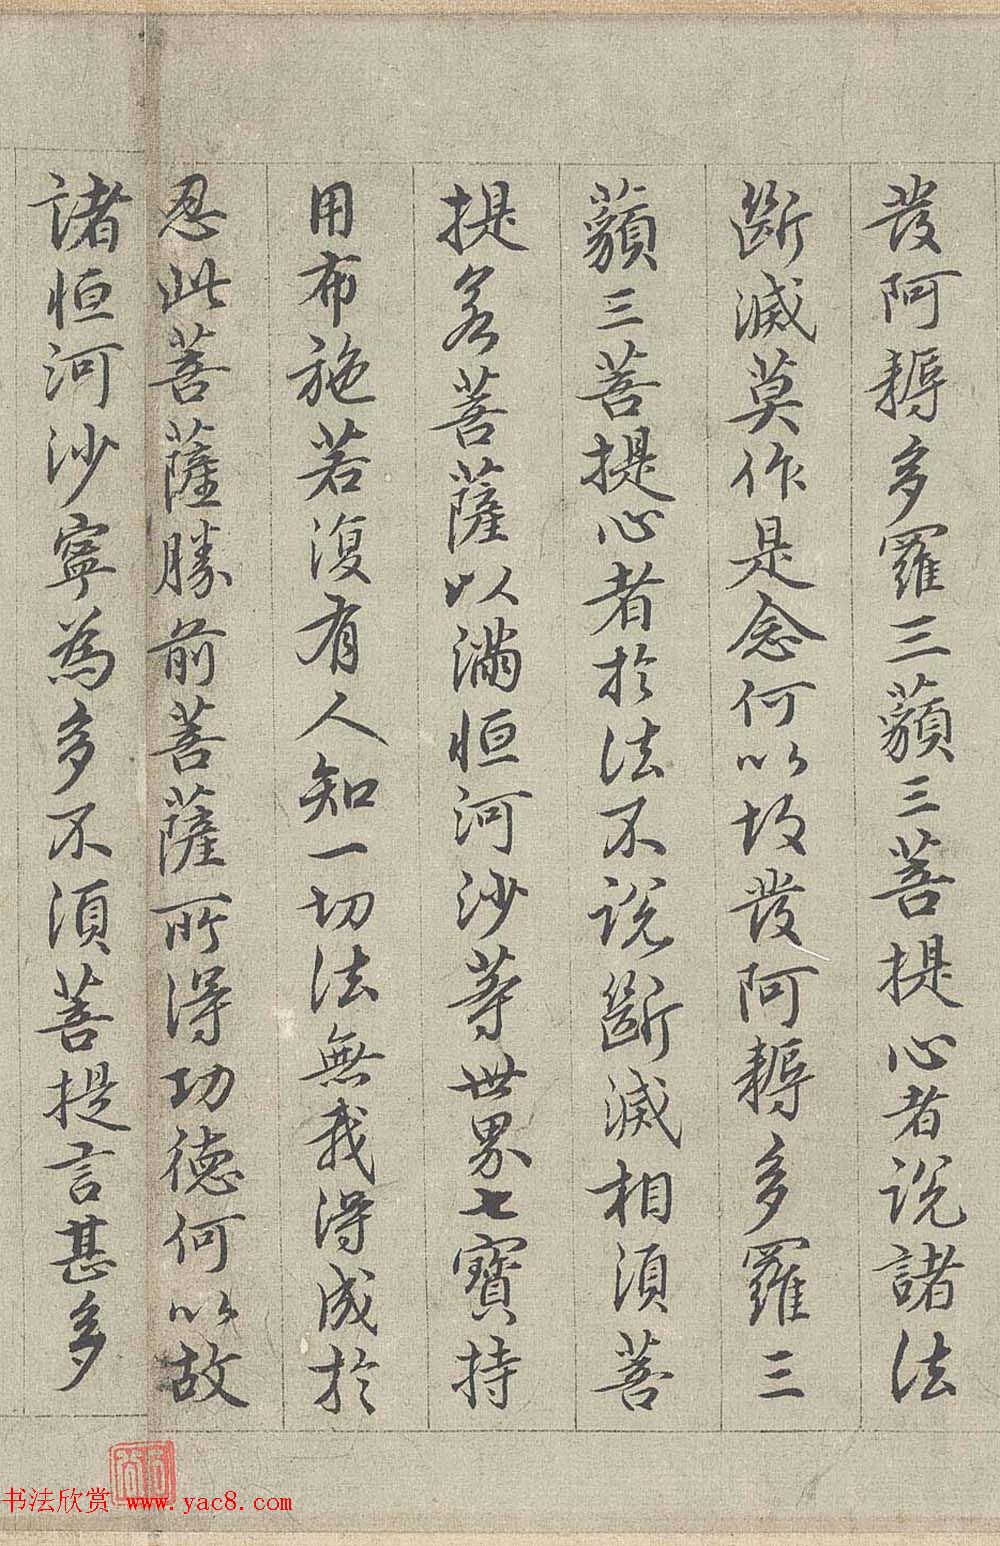 發阿耨多羅三藐三菩提心者説諸法
斷滅莫作是念何以故發阿耨多羅三
藐三菩提心者於法不説斷滅相須菩
提若菩薩以滿恒河沙等世界七寶持
用布施若復有人知一切法無我得成於
忍此菩薩勝前菩薩所得功德何以故
諸恒河沙寧為多不須菩提言甚多
书法欣赏 www.yac8.com